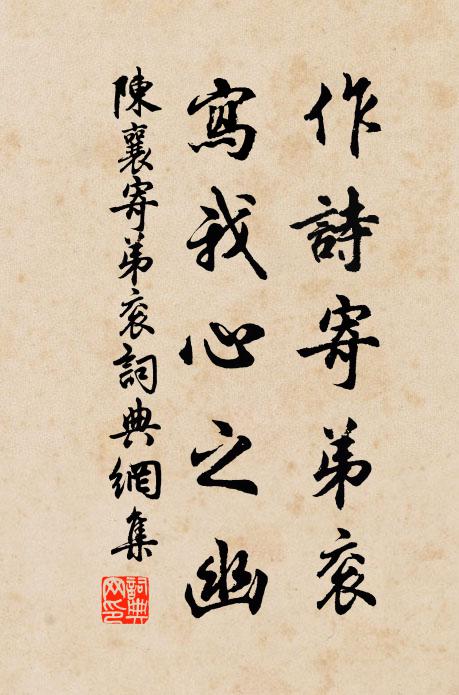 作詩寄弟衮
寫我心之幽
陳襄寄弟衮詞典網集
詞典網印